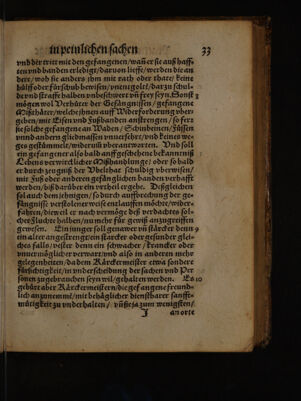 in peinlichen sachen 33
vnd der tritt mit den gefangenen/wañ er sie auß hafften
vnd banden erledigt/daruon lieffe/werden die andere/
wob sie anders ihm mit rath oder thate/ keine
hülff oder fürschub bewisen/vnentgolt/dar zu schulde
vnd straffe halben vnbeschwert vñ frey seyn. Sonst
mögen wol Verhüter der Gefängnissen/gefangene
Mißthäter/welche ihnen auff Widerforderung vbergeben/
mit Eisen vnd Fußbanden anstrengen/so ferr
sie solche gefangene an Waden/Schinbeinen/Füssen
vnd andern gliedmassen vnverletzt vnd keines weges
gestümmelt/widerumb vberantwarten. Vnd soll
ein gefangener also bald auff geschehene bekanntniß
Lebens verwircklicher Mißhandlunge/oder so bald
er durch zeugniß der Vbelthat schuldig vberwiesen/
mit Fuß oder anderen gefänglichen banden verhafft
werden/biß darüber ein vrtheil ergehe. Deßgleichen
sol auch dem ihenigen/so durch auffbrechung der gefängnisse
verstolener weise entlauffen möchte/widerfahren/
die weil er nach vermöge deß verdachtes solches
Fluchte halben/nu mehr für gewiß anzugreiffen
gewesen. Ein junger soll genawer vñ stärcker denn 9
ein alter angestrengt ein stärcker oder gesunder gleiches
falls/vester denn ein schwacher/krancker oder
vnuermöglicher verwart/vnd also in anderen mehr
gelegenheiten/da dem Kärckermeister etwa sondere
fürsichtigkeit/in vnderscheidung der sachen vnd Personen
zugebrauchen seyn wil/gehalten werden. Es 10
gebürt aber Kärckermeistern/die gefangene freundlich
anzunemmē/mit behäglicher dienstbarer sanfftmütigkeit
zu vnderhalten/ zum wenigsten/
J an orte